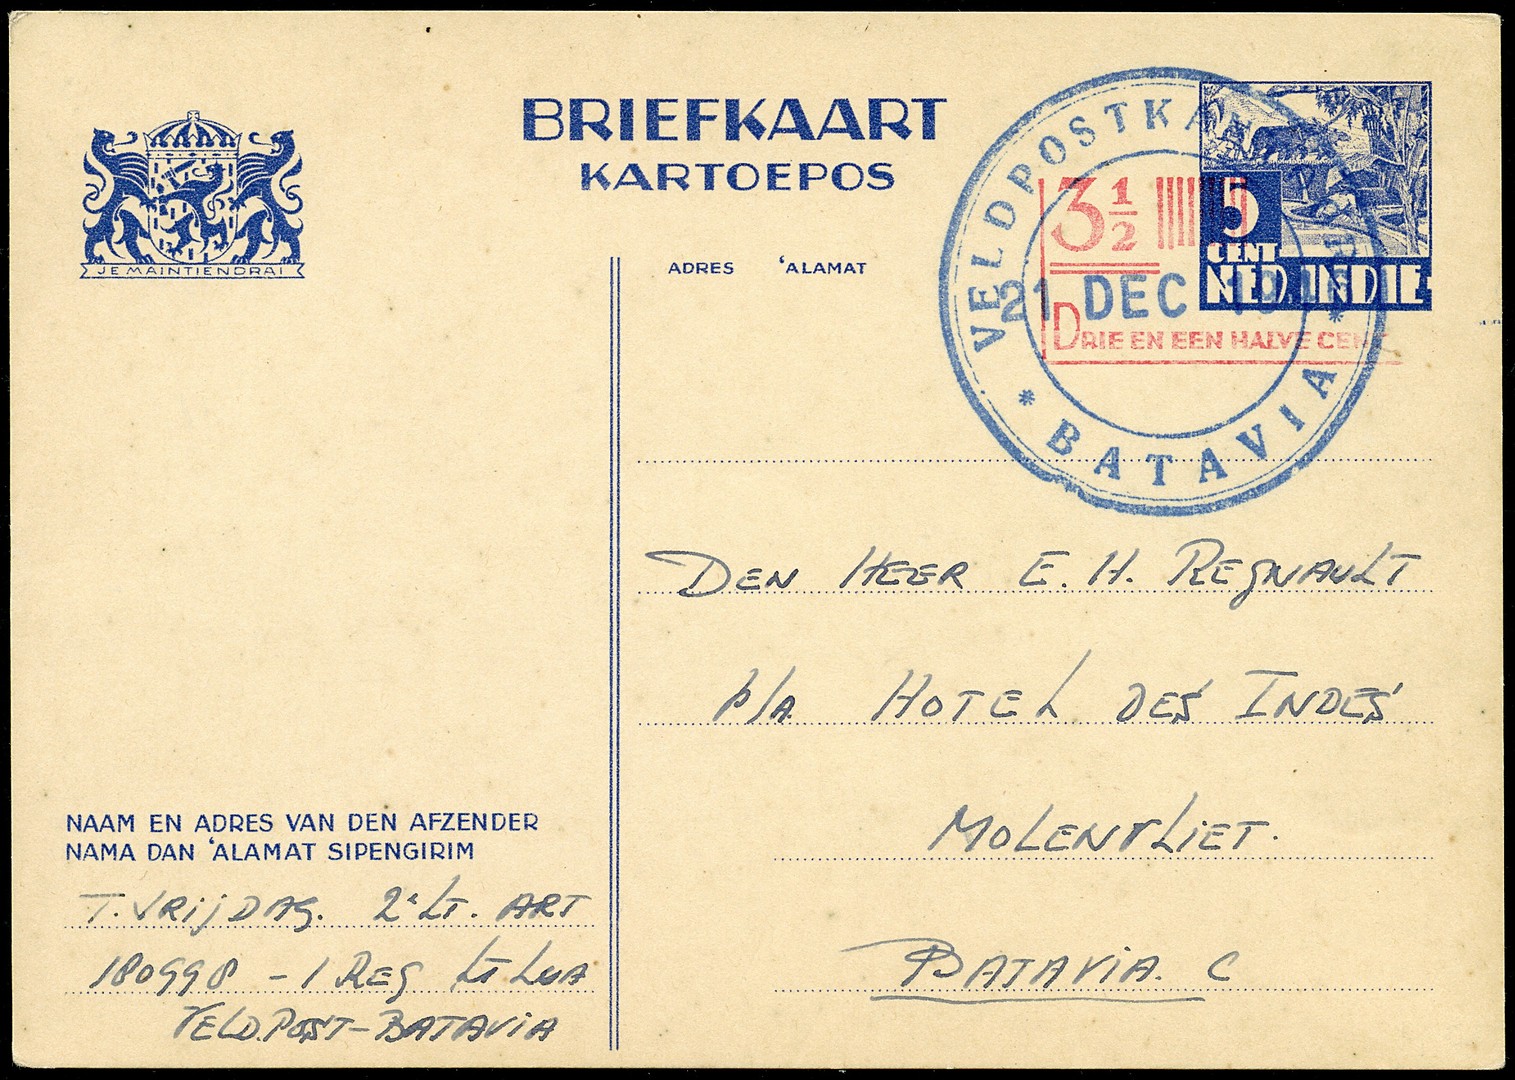 BRIEFKAART
KARTOEPOS
JE MAINTIENDRAI
ADRES 'ALAMAT
VELDPOSTKANTOOR
* BATAVIA *
21 DEC
3 1/2
DRIE EN EEN HALVE CENT
5
CENT
NED. INDIE
DEN HEER E. H. REGNAULT
p/a HOTEL DES INDES
MOLENVLIET.
BATAVIA. C
NAAM EN ADRES VAN DEN AFZENDER
NAMA DAN 'ALAMAT SIPENGIRIM
T. VRIJDAG. 2e LT. ART
180998 - 1 REG Lt LUA
VELDPOST-BATAVIA